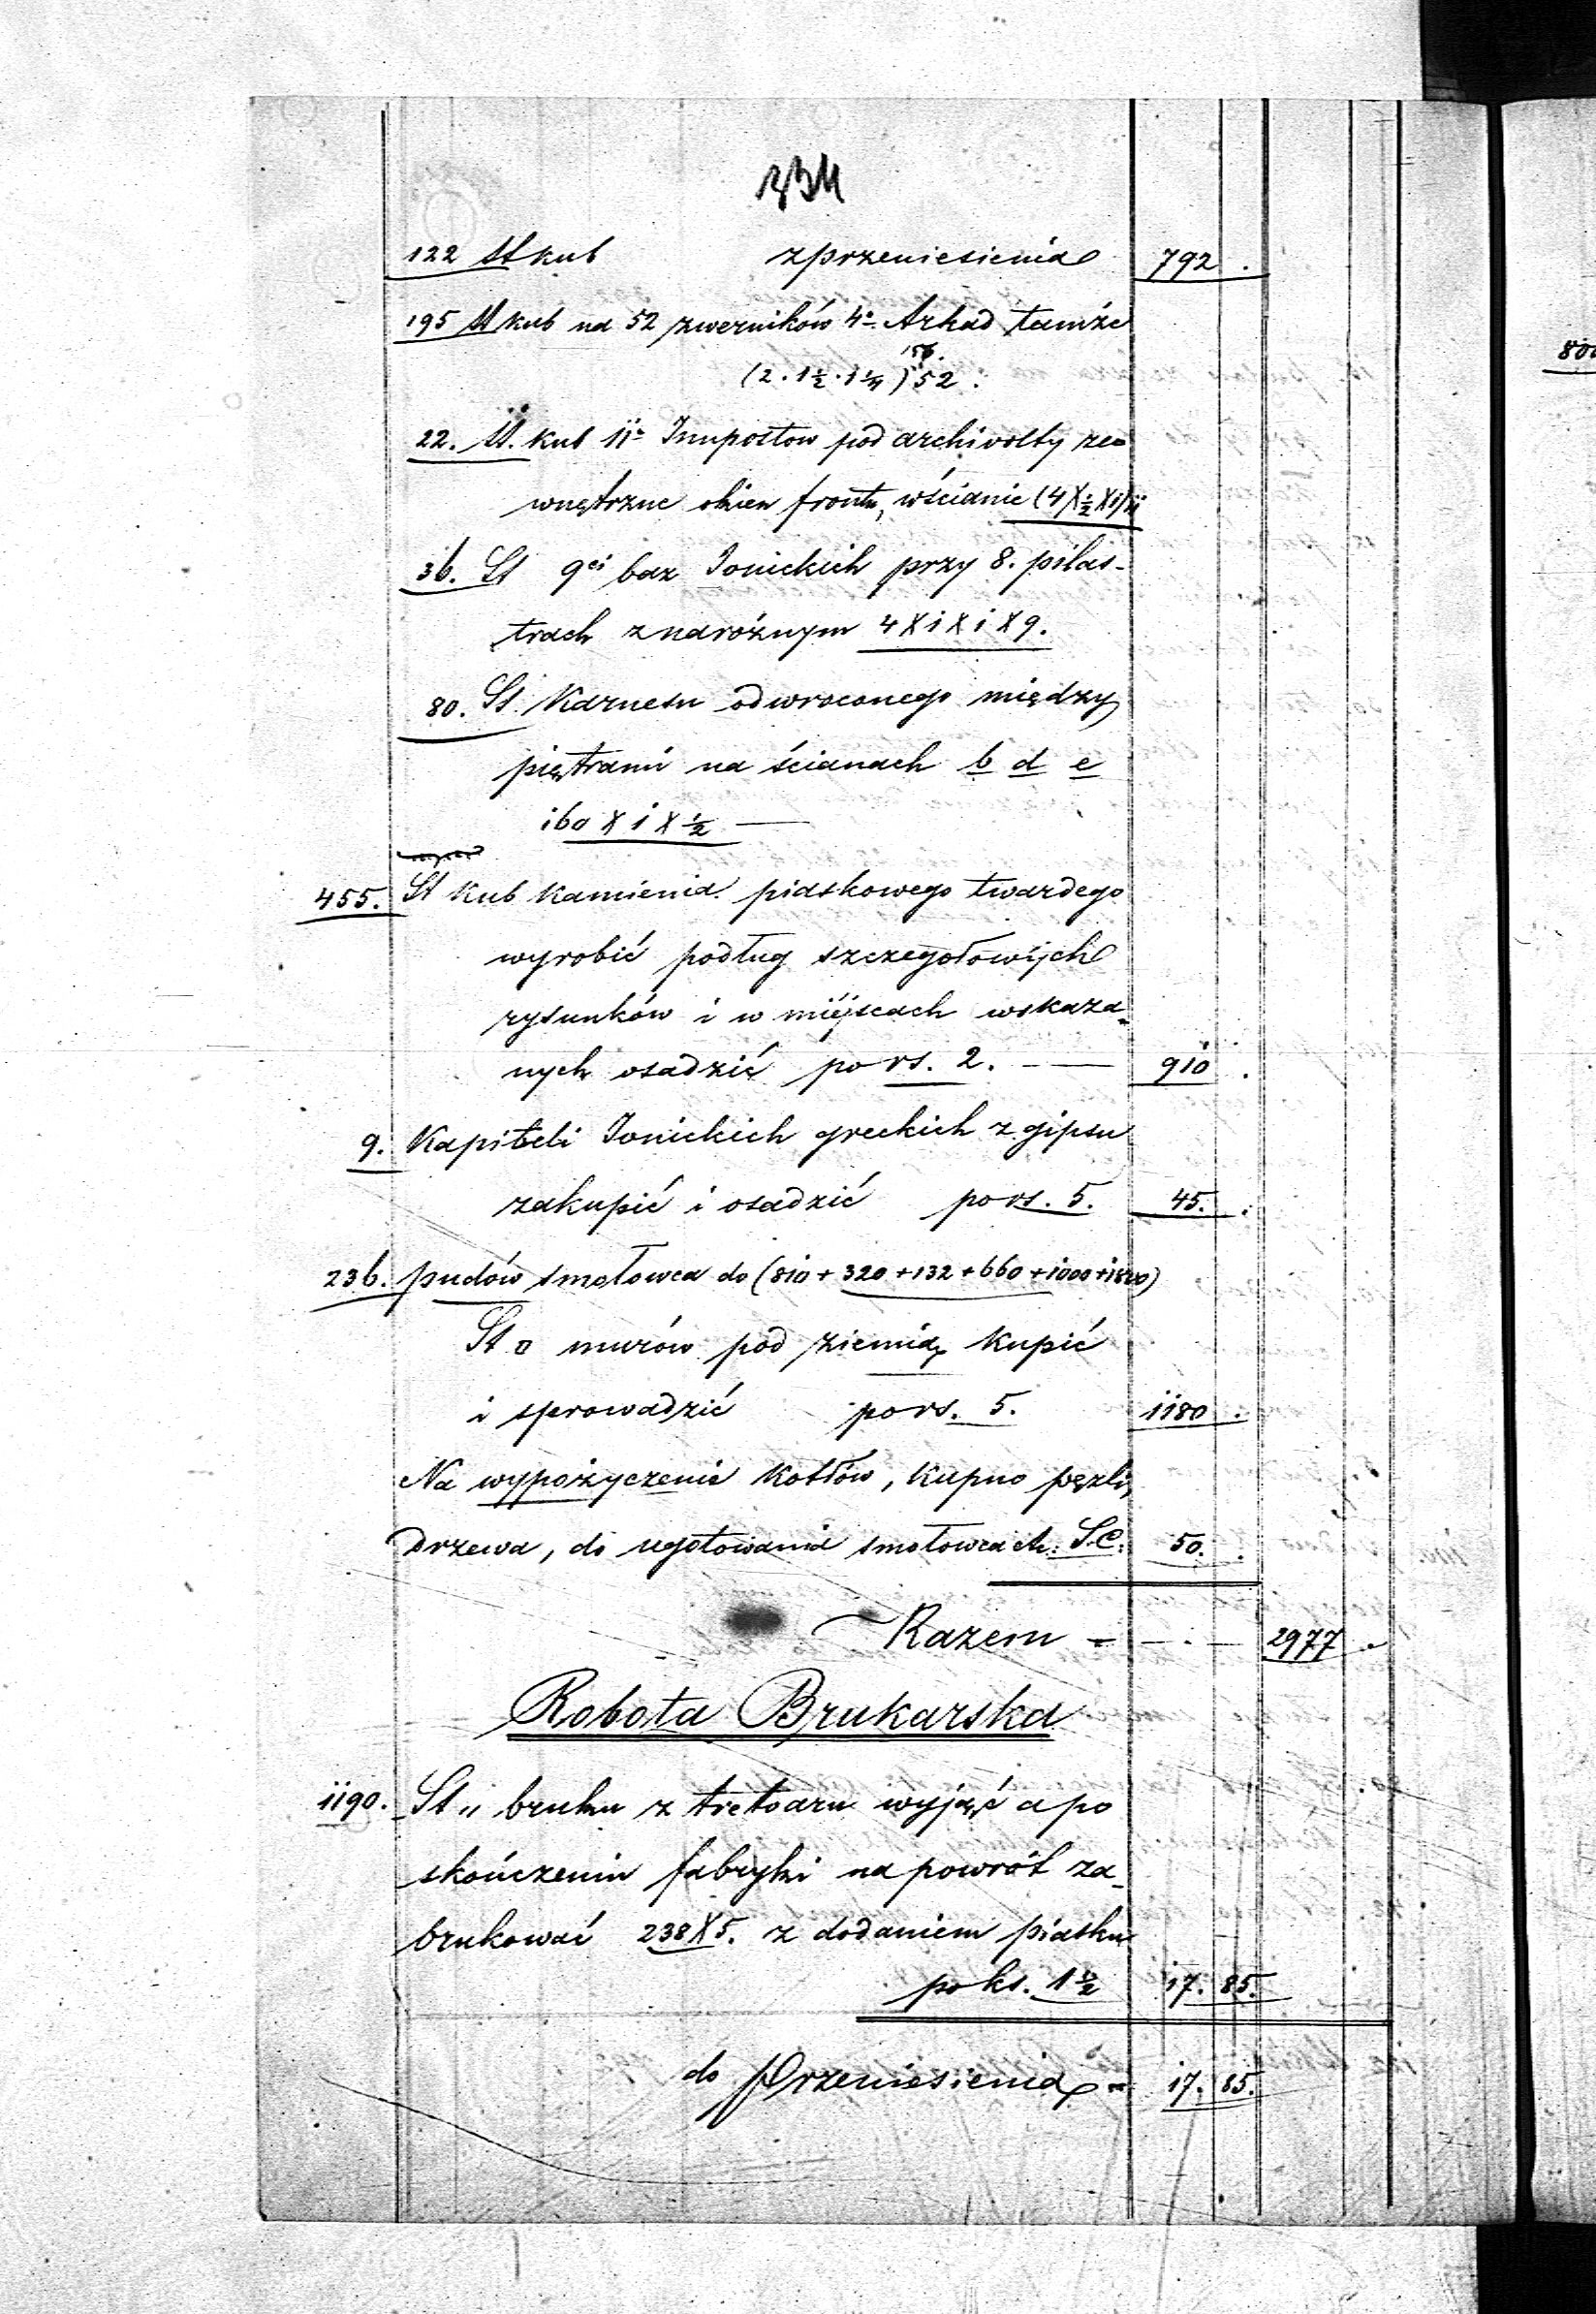 234
122 St kub z przeniesienia 792 .
195 St kub na 52 zworników 4° Arkad tamże
156.
(2 . 1½ . 1¼) 52 :
22. St. kub 11° Impostow pod archivolty ze=
wnętrzne okien frontu, wścianie (4 X ½ X 1) 11
36. St 9ci baz Jonickich przy 8. pilas-
trach z narożnym 4 X 1 X 1 X 9.
80. St. Karnesu odwroconego między
piętrami na ścianach b d e
160 X 1 X ½ —
455. St kub kamienia piaskowego twardego
wyrobić podług szczegołowych
rysunków i w miéjscach wskaza=
nych osadzić po rs. 2. — 910 .
9. Kapiteli Jonickich greckich z gipsu
zakupić i osadzić po rs. 5. 45. .
236. pudów smołowca do (810 + 320 + 132 + 660 + 1000 + 1800)
St □ murów pod ziemią kupić
i sprowadzić po rs. 5. 1180 .
Na wypożyczenie kotłów, kupno pęzli,
Drzewa, do ugotowania smołowca 50. .
Razem - — . — 2977 .
Robota Brukarska
1190. St " bruku z tretoaru wyjąść a po
skończeniu fabryki na powrót za-
brukować 238 X 5. z dodaniem piasku
po ks. 1½ 17. 85.
do Przeniesienia = 17. 85.
800